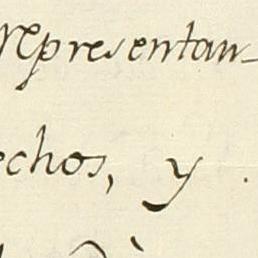 representan-
echos, y